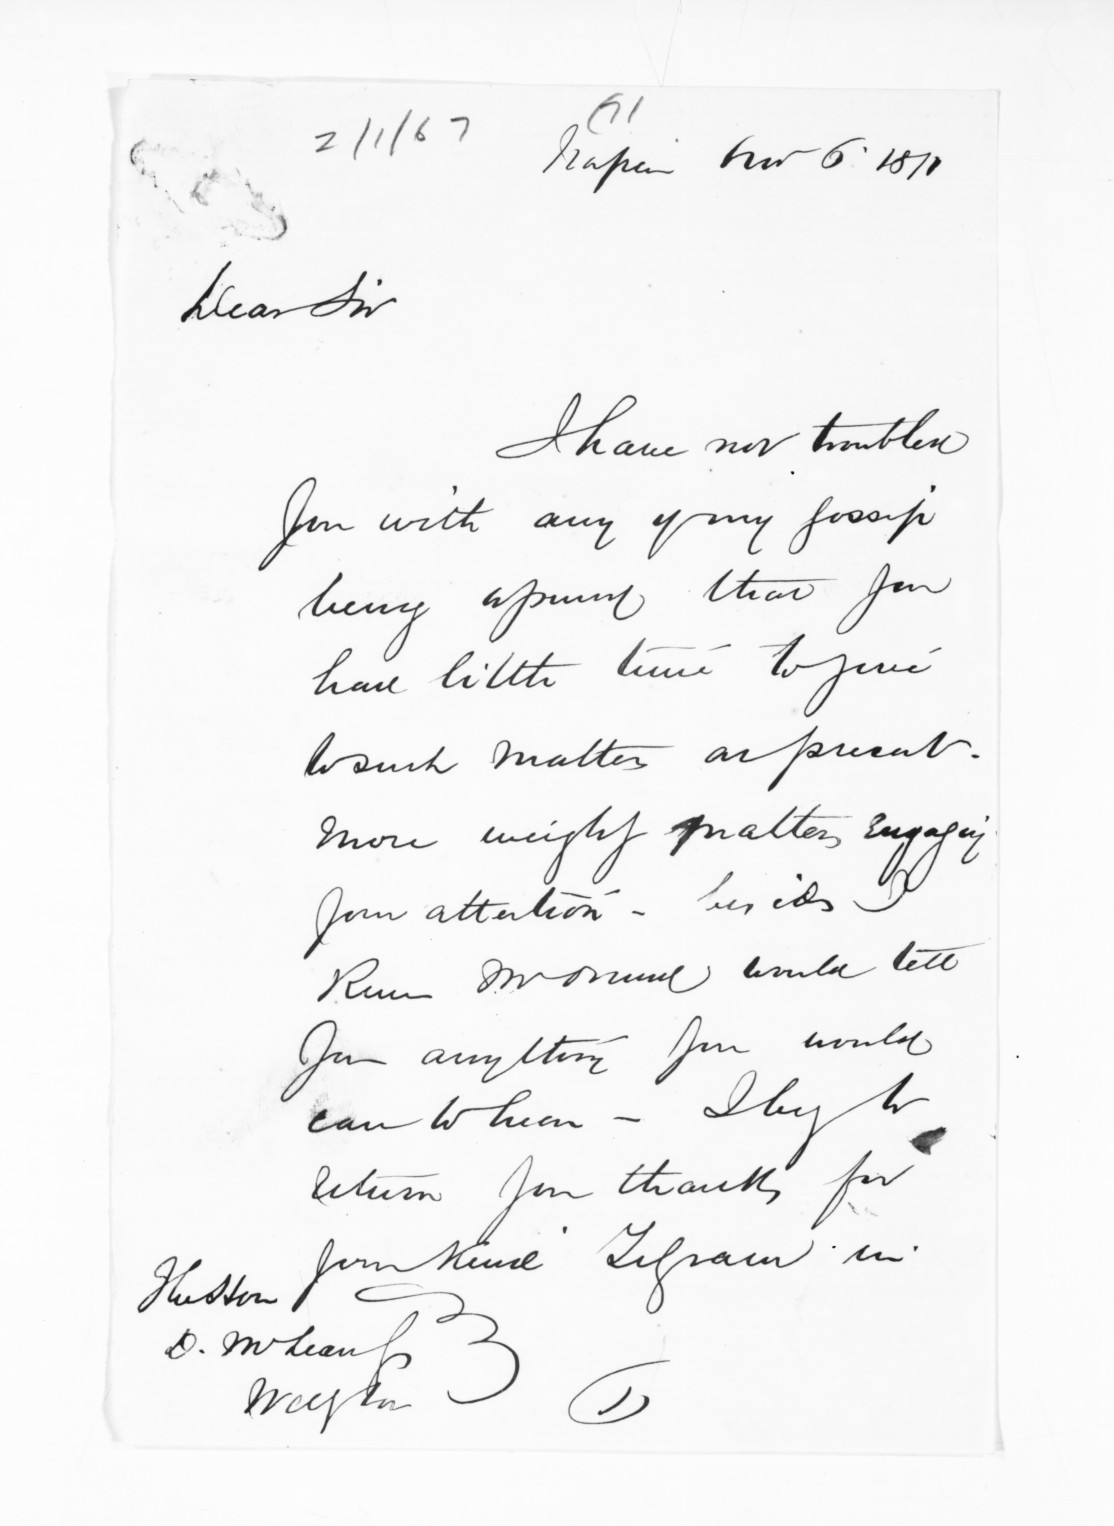 2/1/67
71
Napier Nov 6 1871
Dear Sir
I have not troubled
you with any of my gossip
being assured that you
have little time to give
to such matters at present.
More weighty matters Engaging
your attention - besides I
knew would tell
you anything you would
care to hear - I beg to
return you thanks for
your kind Telgram in
The Hon
D. McLean
Wellgton
1